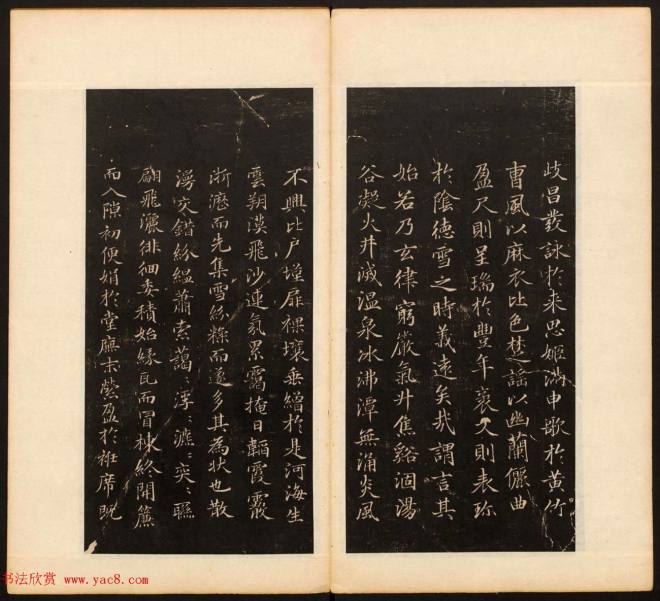 岐昌發詠於来思姬滿申歌於黃竹
曹風以麻衣比色楚謠以幽蘭儷曲
盈尺則呈瑞於豐年袤丈則表沴
於陰德雪之時義遠矣哉謂言其
始若乃玄律窮嚴氣升焦谿涸湯
谷凝火井滅溫泉冰沸潭無涌炎風
不興北戶墐扉裸壤垂繒於是河海生
雲朔漠飛沙連氛累靄掩日韜霞霰
淅瀝而先集雪紛糅而遂多其為狀也散
漫交錯紛縕蕭索藹〻浮〻瀌〻奕〻聯
翩飛灑徘徊委積始緣甍而冒棟終開簾
而入隙初便娟於堂廡末縈盈於帷席既
书法欣赏 www.yac8.com